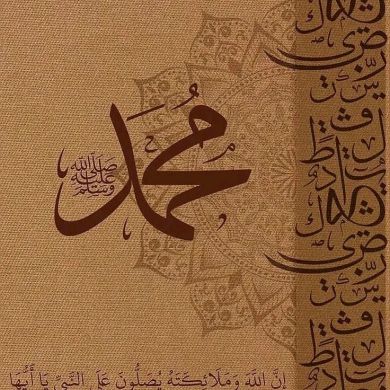 محمد
صلى الله عليه وسلم
إِنَّ اللَّهَ وَمَلَائِكَتَهُ يُصَلُّونَ عَلَى النَّبِيِّ يَا أَيُّهَا